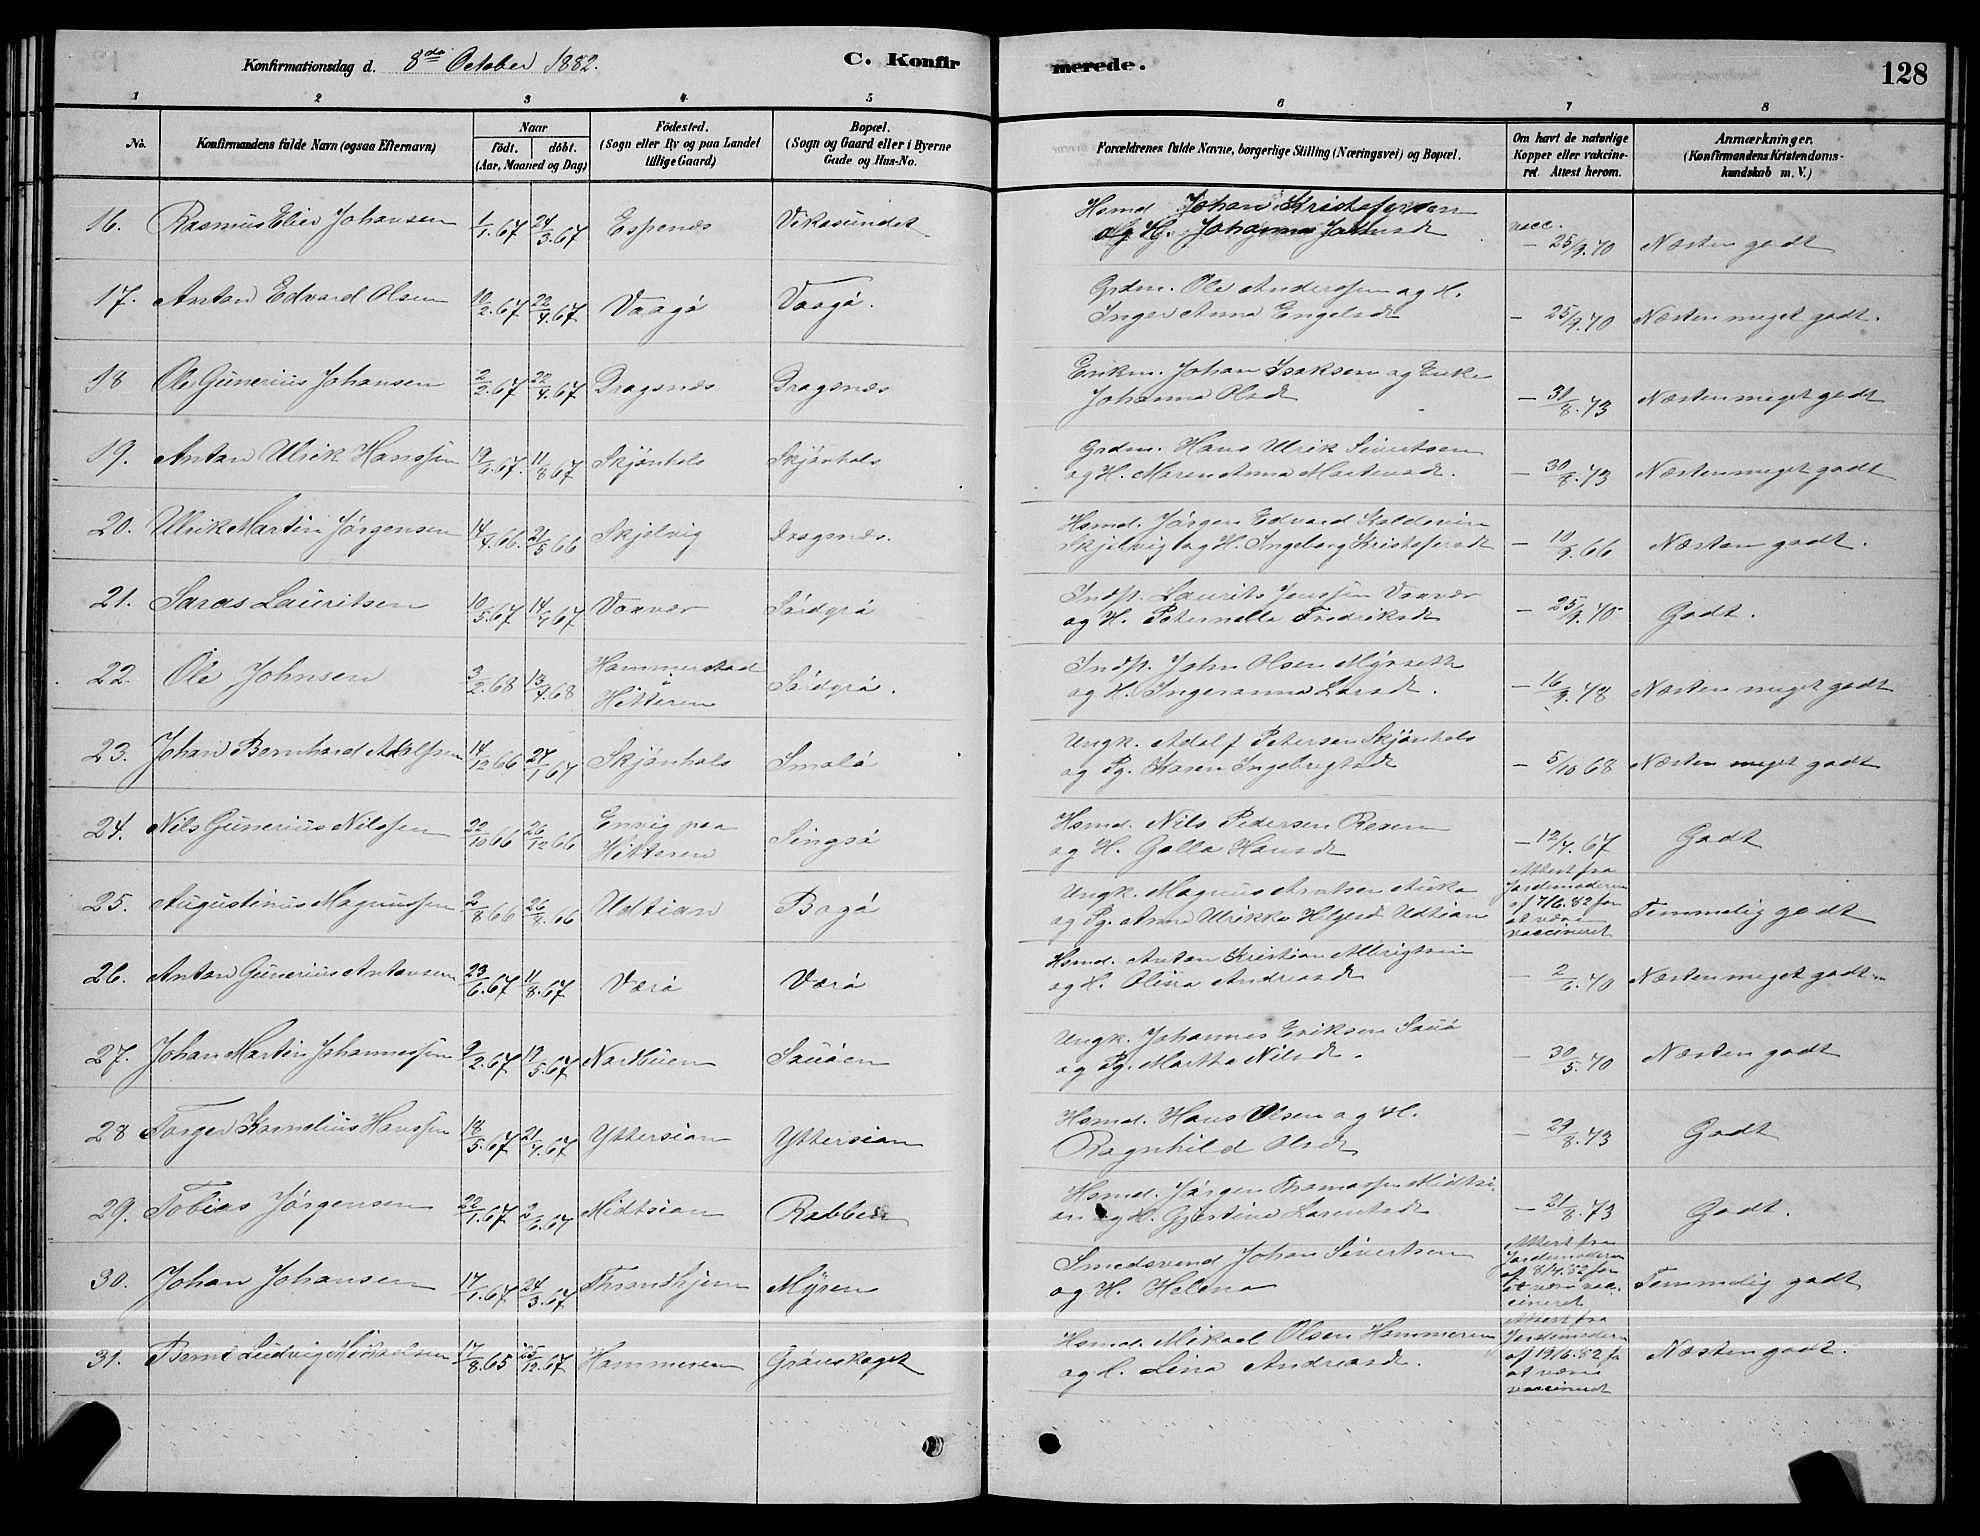 Konfirmationsdag d. 8de October 1882. C. Konfirmerede. 128
1 2 3 4 5 6 7 8
No. Konfirmandens fulde Navn (ogsaa Efternavn) Naar födt. döbt. (Aar, Maaned og Dag) Födested. (Sogn eller By og paa Landet tillige Gaard) Bopæl. (Sogn og Gaard eller i Byerne Gade og Hus-No. Forældrenes fulde Navne, borgerlige Stilling (Næringsvei) og Bopæl. Om havt de naturlige Kopper eller vakcineret. Attest herom. Anmærkninger. (Konfirmandens Kristendomskundskab m. V.)
16. Rasmus Elias Johansen 1/1.67 24/3.67 Espenæs Vikasundet Hsmd. Johan Kristofersen
og H. Johanna vacc. – 25/9.70 Næsten godt
17. Anton Edvard Olsen 10/2.67 22/4.67 Vaagø Vaagø. Grdm. Ole Anderssen og H.
Inger Anna Engelsd – 25/9.70 Næsten meget godt.
18 Ole Gunerius Johansen 2/2.67 22/4.67 Dragsnæs Dragsnæs Enkm. Johan Isaksen og Enke
Johanna Olsd – 30/8.73 Næsten meget godt
19. Anton Ulrik Hanssen 11/8 67 Skjønhals Skjønhals Grdm. Hans Ulrik Sivertsen
og H. Maren Anna Martensd. – 30/8.73 Næsten meget godt
20. Ulrik Martin Jørgensen 14/4.66. 21/5 66 Skjelvig Dragsnæs. Hsmd. Jørgen Edvard Koldevin
Skjelvig og H. Ingeborg Kristofersd – 10/9.66 Næsten godt.
21. Laras Lauritsen 10/3.67 14/4 67 Vaavær Sørdyrø Indst. Laurits Jenssen Vaavær
og H. Peternella Fredriksd – 25/9.70 Godt.
22. Ole Johnsen 3/2.68 13/4.68 Hammerstad
Hitteren Sørdyrø. Indst. John Olsen
og H. Ingeranna Larsd. – 16/9.78 Næsten meget godt
23. Johan Bernhard Adolfsen 14/12 66 24/1 67 Skjønhals Smølø Ungk. Adolf Petersen Skjønhals
og Pg. Karen Ingebrigtsd – 5/10 68 Næsten meget godt
24. Nils Gunerius Nilssen 22/10 66 26/12 66 Envig paa
Hitteren Singsø Hsmd. Nils Pedersen Rexen
og H. Golla Hansd – 12/7.67 Godt
25. Augustinus Magnussen 2/8 66 26/8.66 Udtian Bogø Ungk. Magnus Arntsen Auka
og Pg. Anne Ulrikke Helgesd Udtian Attest fra
Jordemoderen
af 7/6.82 for
at være
vaccineret Temmelig godt
26. Anton Gunerius Antonsen 23/6.67 11/8.67 Værø Værø Hsmd. Anton Kristian Albrigtsen
og H. Olina Andreasd – 2/6.70 Næsten meget godt
27. Johan Martin Johannessen 9/2.67 19/5.67 Nordbuen Sauøen Ungk. Johannes Eriksen Sauø
og Pg. Martha Nilsd. – 30/5.70 Næsten godt
28 Torger Kornelius Hanssen 18/5.67 21/7.67 Yttersian Yttersian Hsmd. Hans Olsen og H.
Ragnhild Olsd – 29/8.73 Godt
29. Tobias Jørgensen 22/1.67 Midtsian Rabben Hsmd. Jørgen Thomassen Midtsi-
an og H. Gjertine Lorentsd. – 21/8.73 Godt.
30. Johan Johansen 17/1.67 24/3.67 Throndhjem Myren Smedsvend Johan Sivertsen
og H. Helena Attest fra
Jordemoderen
af 8/7.82 for
at være vac-
cineret Temmelig godt
31. Bernt Ludvig Mikaelsen 17/8.65 25/12.67 Hammeren Grønskaget Hsmd. Mikael Olsen Hammeren
og H. Lina Andreasd. Attest fra
Jordemoderen
af 19/6.82 fo
at være
vaccineret Næsten godt.